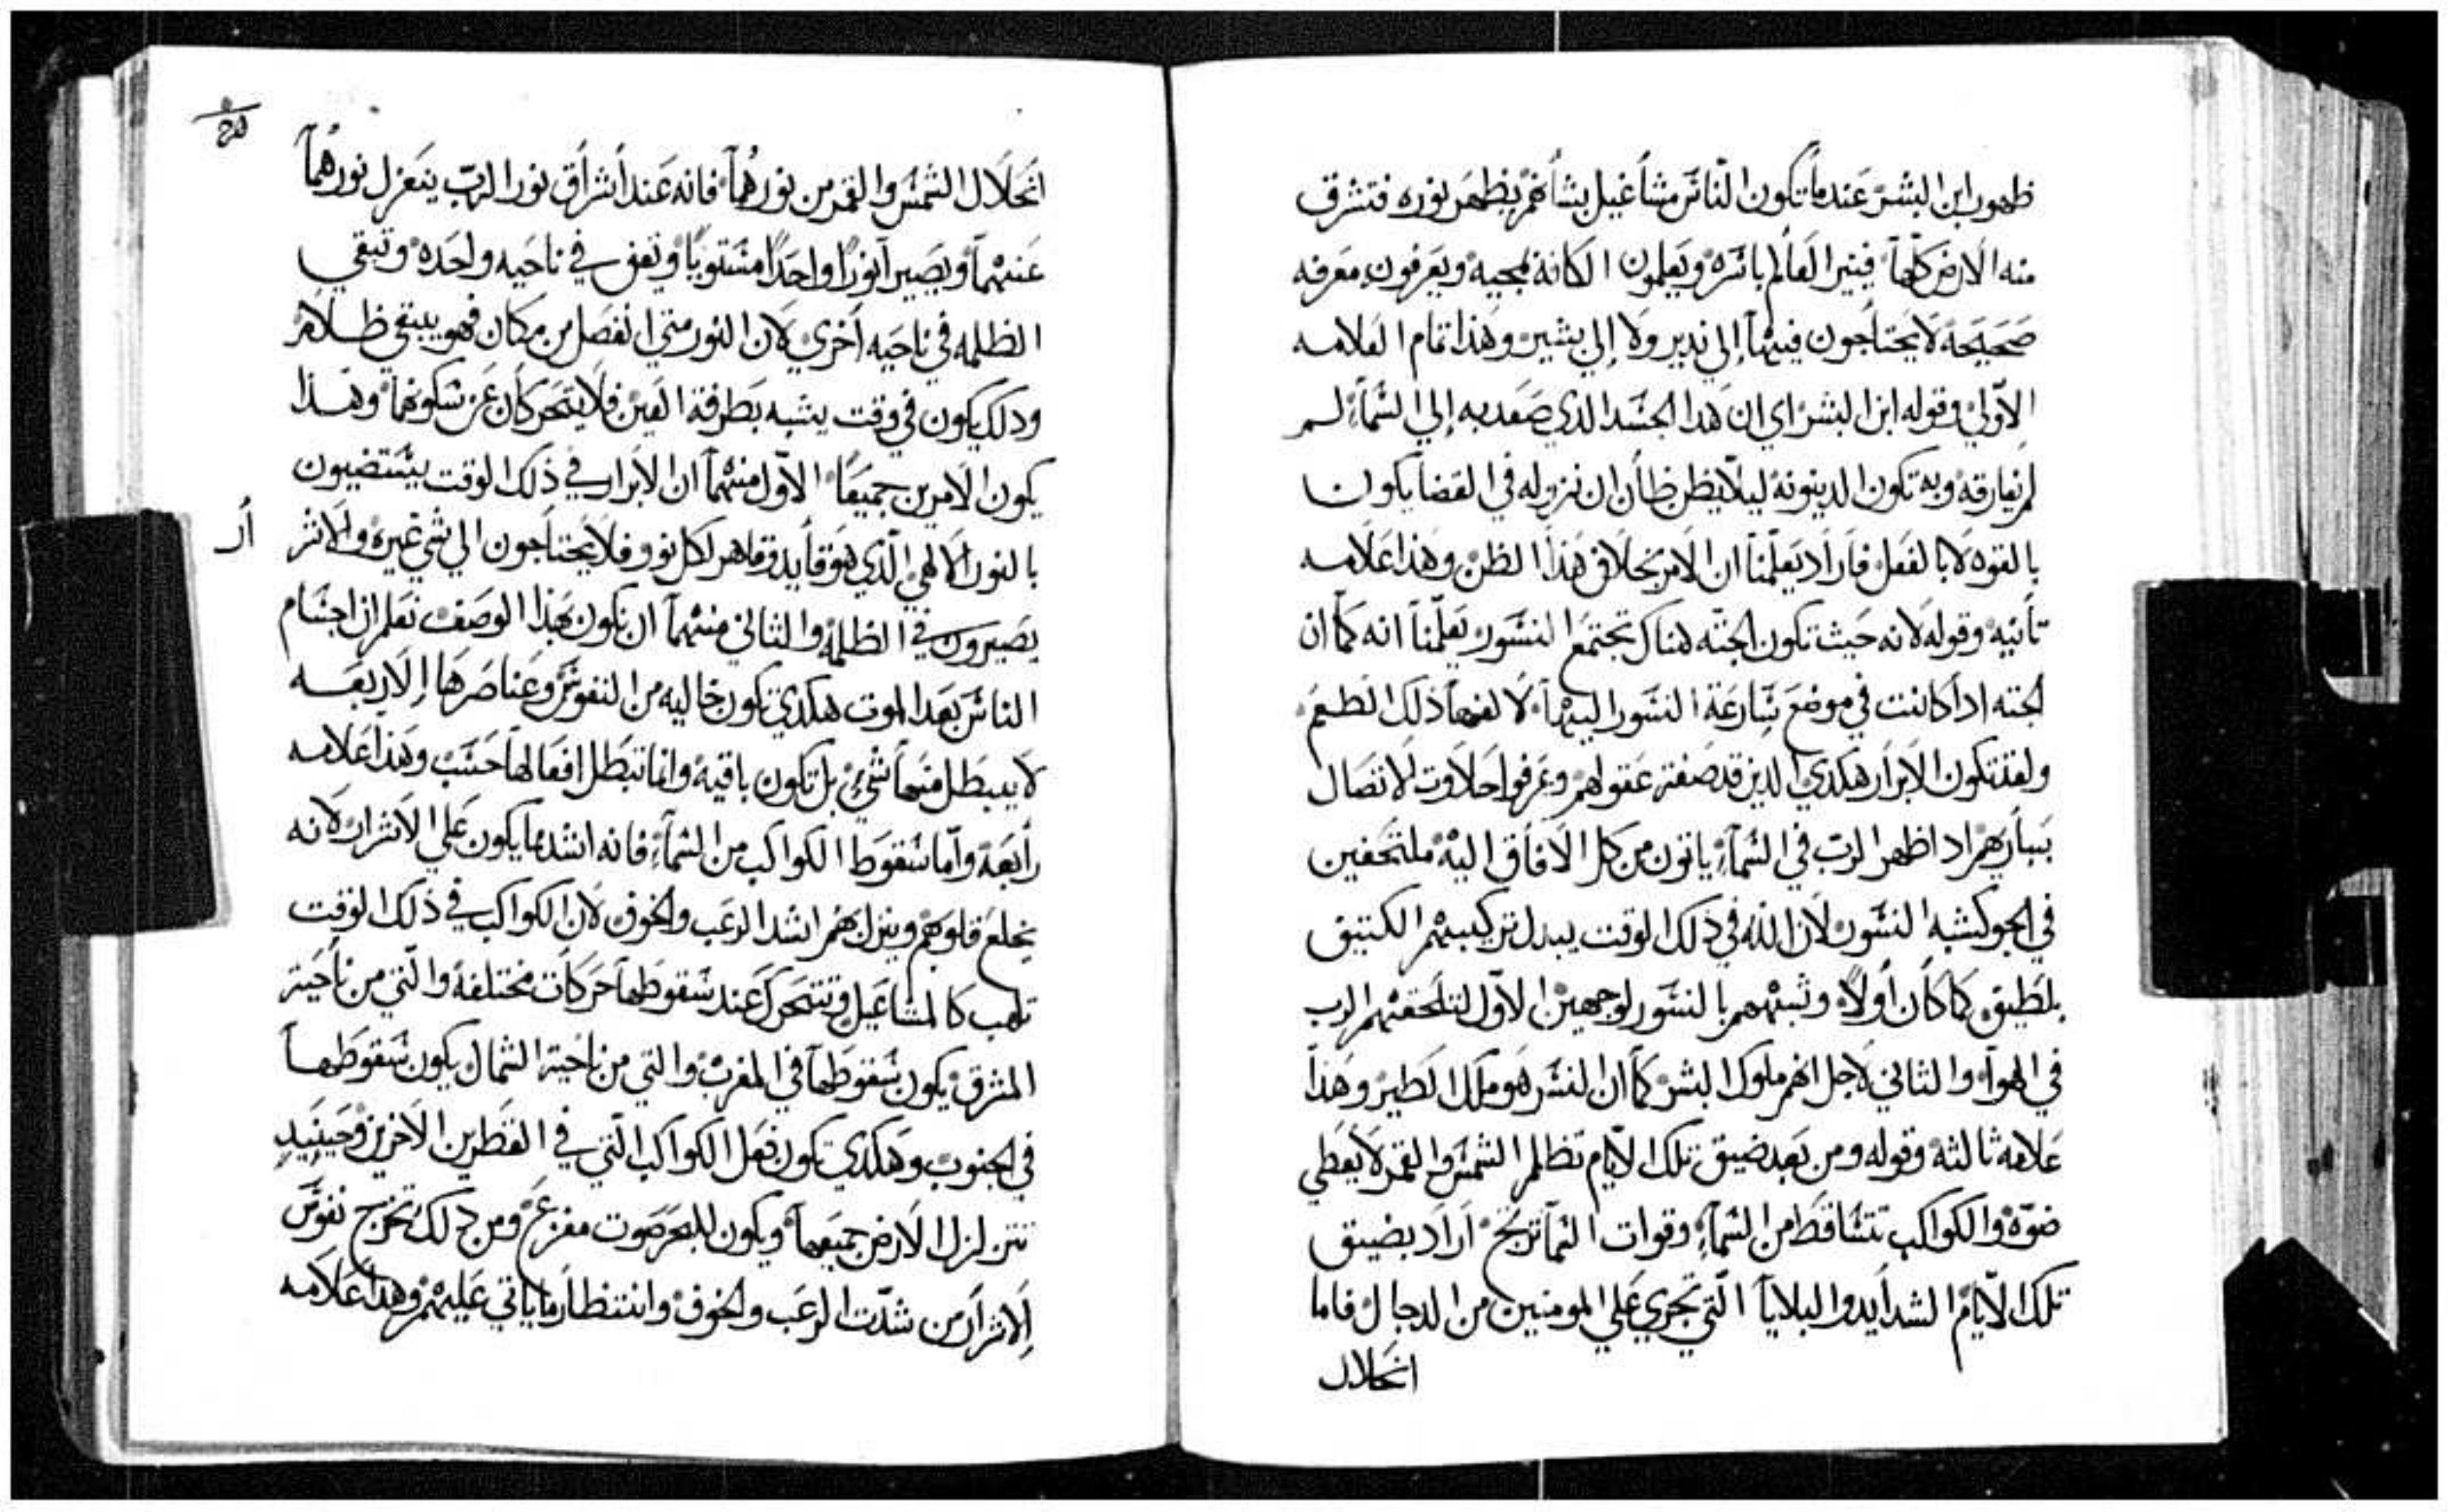 ظهور ابن البشر عند ما تكون الناس مشاغيل بشانهم يظهر نوره فتشرق
منه الارض كلها فينير العالم باسره ويعلمون الكافة بمجيه ويعرفون معرفه
صحيحة لا يحتاجون فيها إلي ندير ولا إلي بشير وهذا تمام العلامه
الاولي وقوله ابن البشر اي ان هدا الجسد الدي صعد به إلي السماء لم
لم يفارقه وبه تكون الدينونة ليلا يظن ظان ان نزوله في القضا يكون
بالقوه لا بالفعل فاراد يعلمنا ان الامر بخلاف هذا الظن وهذا علامه
تانيه وقوله لانه حيث تكون الجثه هناك تجتمع النسور يعلمنا انه كما ان
الجثه ادا كانت في موضع سارعة النسور اليها لالفها ذلك الطعم
ولقد تكون الابرار هكدي الدين قد صفت عقولهم وعرفوا حلاوت الاتصال
ببارهم اد اظهر الرب في السماء ياتون من كل الافاق اليه ملتحفين
في الجو كشبه النسور لان الله في ذلك الوقت يبدل تركيبهم الكتيف
بلطيف كما كان أولا وشبههم بالنسور لوجهين الاول لتلحقهم الرب
في الهوا والثاني لاجل انهم ملوك البشر كما ان النسر هو ملك الطير وهذا
علامة ثالثه وقوله ومن بعد ضيق تلك الايام تظلم الشمس والقمر لا يعطي
ضوه والكواكب تتساقط من السماء وقوات السما ترتج اراد بضيق
تلك الايام الشدايد والبلايا التي تجري علي المومنين من الدجال فاما
انحلال
انحلال الشمس والقمر من نورهما فانه عند أشراق نور الرب ينعزل نورهما
عنهما ويصيرا نورا واحدا مستويا وتقف في ناحيه واحده وتبقي
الظلمه في ناحيه اخري لان النور متي انفصل من مكان فهو يبقي ظلام
ودلك يكون في وقت يشبه بطرفة العين فلا يتحركان عن سكونهما وهذا
يكون الامرين جميعا الاول منهما ان الابرار في ذلك الوقت يستضيون
بالنور الالهي الذي هو فايد وقاهر لكل نور فلا يحتاجون الي شي غيره والاشر
أر
يصيرون في الظلمه والثاني منهما ان يكون بهذا الوصف نعلم ان اجسام
الناس بعد الموت هكدي تكون خاليه من النفوس وعناصرها الاربعه
لا يبطل منها شي بل تكون باقيه وانما تبطل افعالها حسب وهذا علامه
رابعة وأما سقوط الكواكب من السماء فانه اشد ما يكون علي الاشرار لانه
يخلع قلوبهم وينزل بهم اشد الرعب والخوف لان الكواكب في ذلك الوقت
تلهب كالمشاعيل وتتحرك عند سقوطها حركات مختلفة والتي من ناحية
المشرق يكون سقوطها في المغرب والتي من ناحية الشمال يكون سقوطها
في الجنوب وهكدي تكون فعل الكواكب التي في القطرين الاخرين وحينيد
تتزلزل الارض جميعها ويكون للبحر صوت مفزع ومن دلك تخرج نفوس
الاشرار من شدت الرعب والخوف وانتظار ما ياتي عليهم وهدا علامه